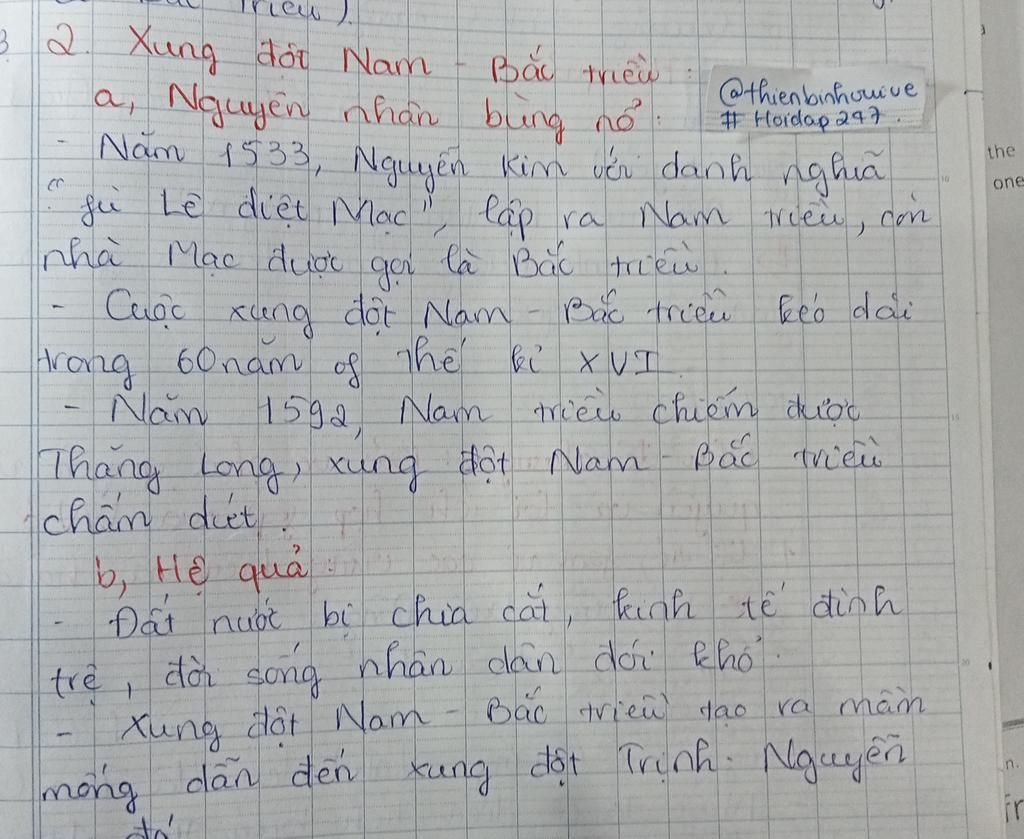 Triều).
2. Xung đột Nam - Bắc triều :
a, Nguyên nhân bùng nổ :
@thienbinhouive
# Hoidap247.
- Năm 1533, Nguyễn Kim với danh nghĩa
"fù Lê diệt Mạc", lập ra Nam triều, còn
nhà Mạc được gọi là Bắc triều.
- Cuộc xung đột Nam - Bắc triều kéo dài
trong 60 năm of thế kỉ XVI
- Năm 1592, Nam triều chiếm được
Thăng Long, xung đột Nam - Bắc triều
chấm dứt.
b, Hệ quả :
- Đất nước bị chia cắt, kinh tế đình
trệ, đời sống nhân dân đói khổ.
- Xung đột Nam - Bắc triều tạo ra mầm
mống dẫn đến xung đột Trịnh - Nguyễn
the
one
n.